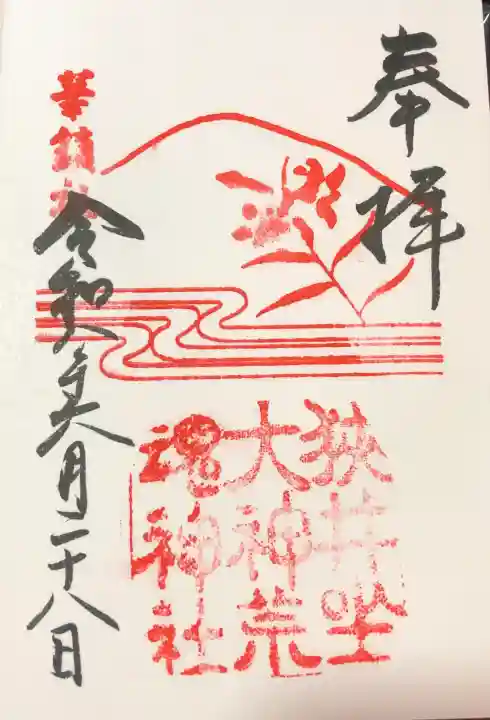 奉拝
狭井坐
大神荒
魂神社
華鎮社
令和元年六月二十八日